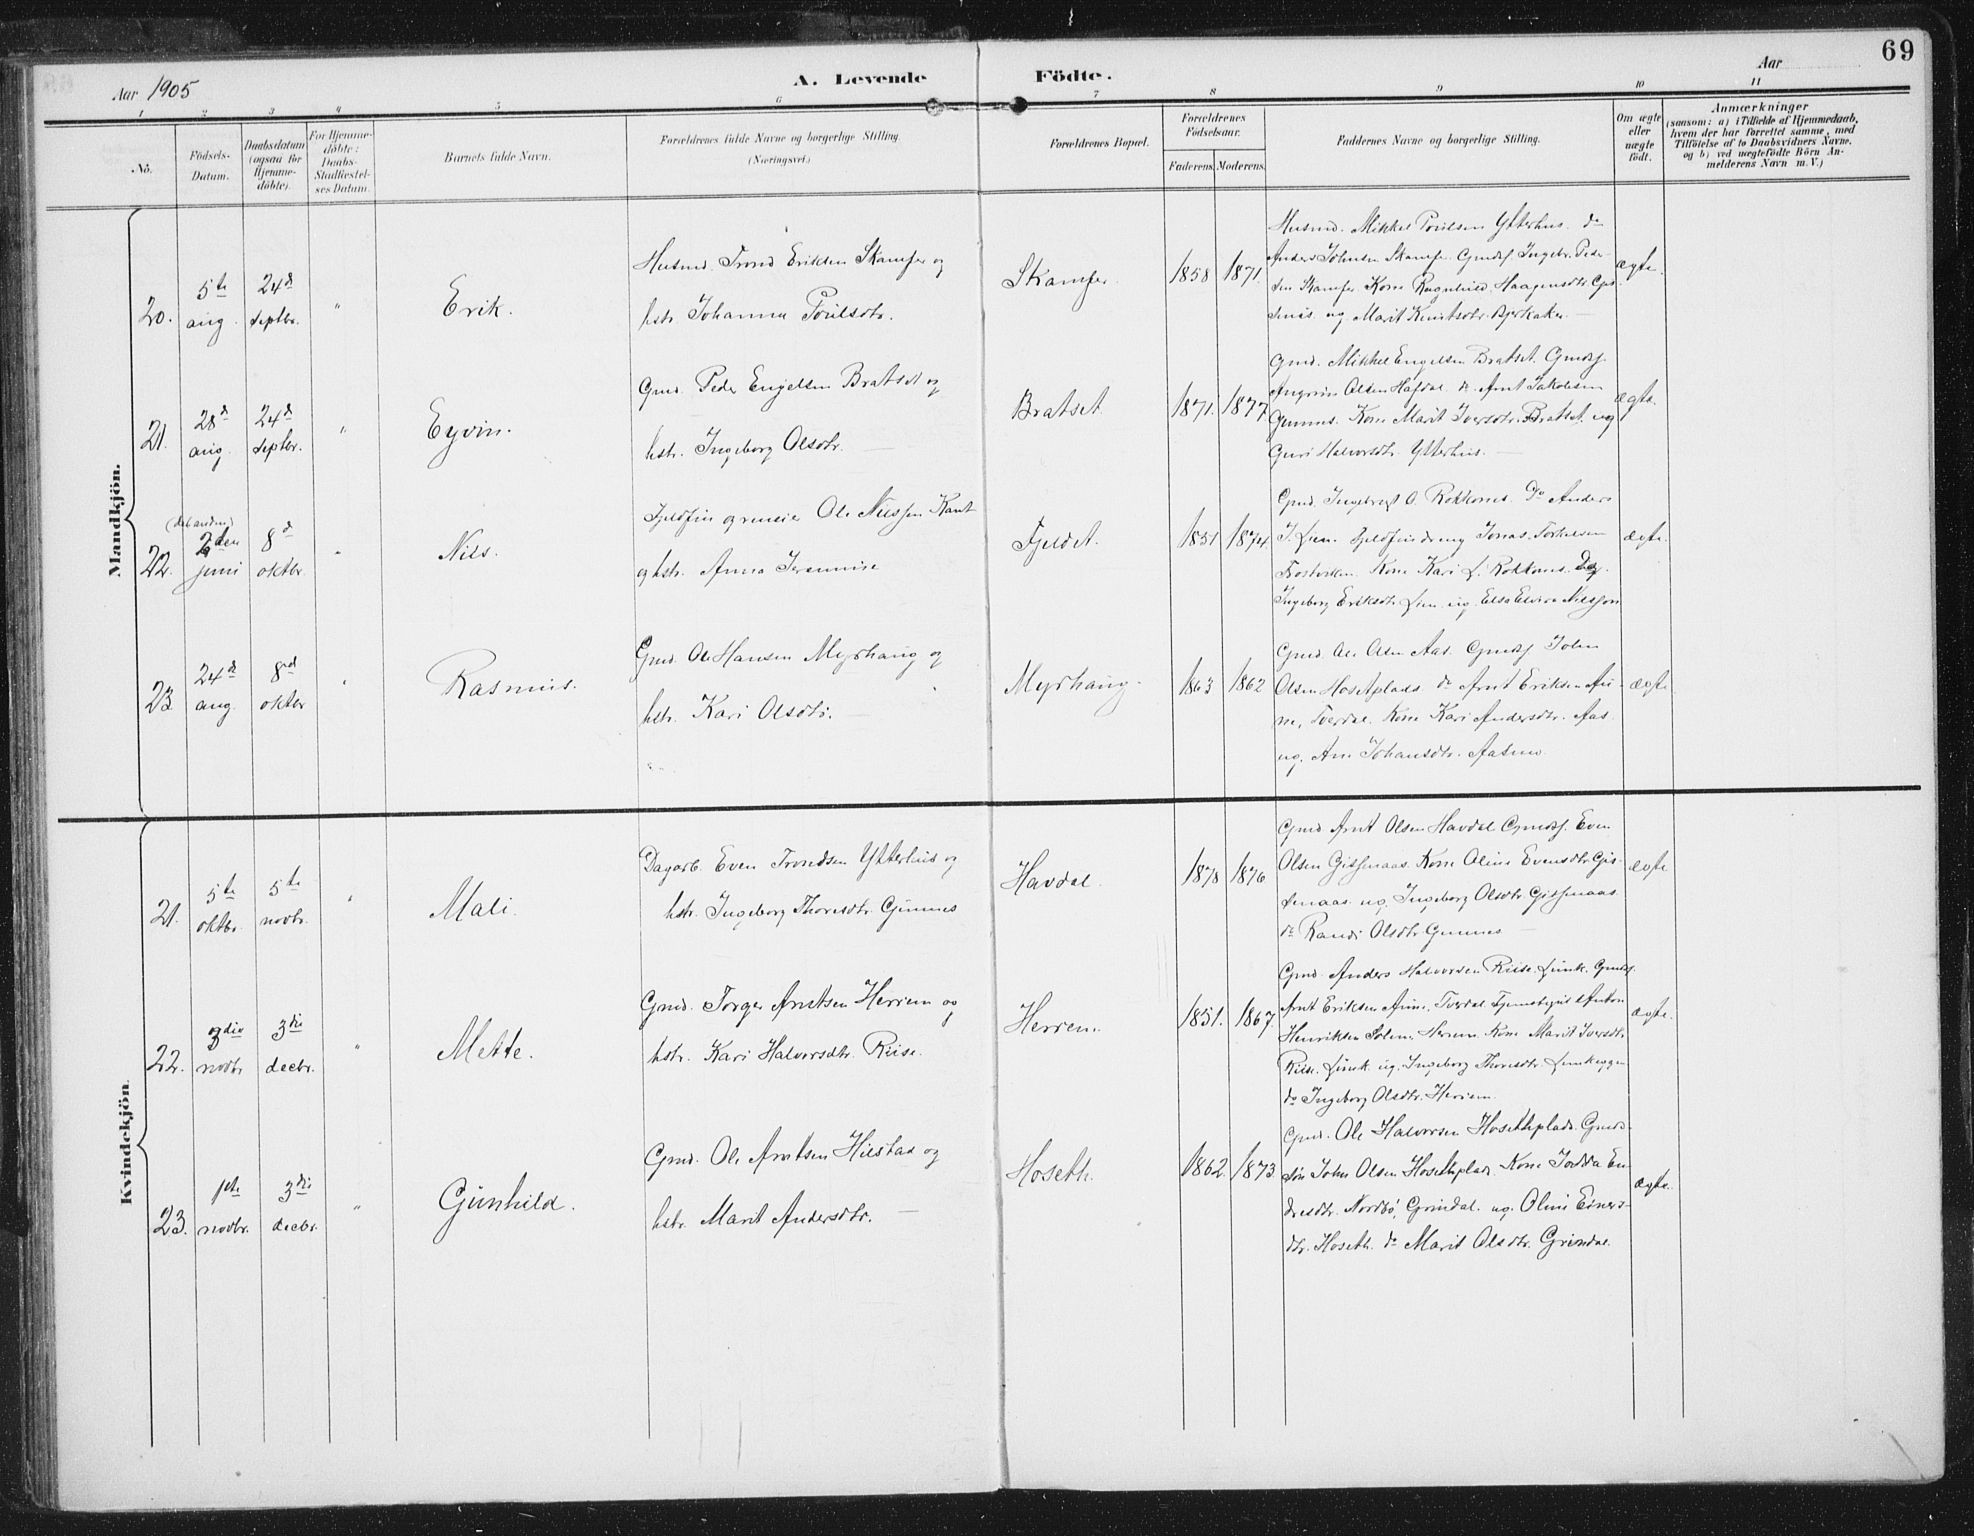 69
Aar 1905
A. Levende Födte.
Aar
1 2 3 4 5 6 7 8 9 10 11
No.
Födsels-Datum.
Daabsdatum (ogsaa for Hjemme-döbte).
For Hjemme-döbte: Daabs-Stadfæstel-ses Datum.
Barnets fulde Navn.
Forældrenes fulde Navne og borgerlige Stilling.
(Næringsvei.)
Forældrenes Bopæl.
Forældrenes Födselsaar.
Faderens. Moderens.
Faddernes Navne og borgerlige Stilling.
Om ægte eller uægte födt.
Anmærkninger
(saasom: a) i Tilfælde af Hjemmedaab,
hvem der har forrettet samme, med
Tilföielse af to Daabsvidners Navne,
og b) ved uægtefödte Börn An-
melderens Navn m. V.)
Mandkjön.
20.
5te
aug.
24d
septbr.
"
Erik.
Husmd. Trond Eriksen Skamfer og
hstr. Johanna Poulsdtr.
Skamfer.
1858
1871.
Husmd. Mikkel Poulsen Ytterhus. do
Anders Johnsen Skamfer. Gmdsf. Ingebr. Peder-
sen Skamfer. Kone Ragnhild Haagensdtr.
og Marit Knutsdtr. Bjerkaker.
ægte.
21.
28d
aug.
24d
septbr.
"
Eyvin.
Gmd. Peder Engelsen Bratset og
hstr. Ingeborg Olsdtr.
Bratset
1871.
1877
Gmd. Mikkel Engelsen Bratset. Gmdsf.
Angrim Olsen Hafdal. do Arnt Jakobsen
Gunnes. Kone Marit Iversdtr. Bratset og
Guri Halvorsdtr. Ytterhus.
ægte.
22.
2den
juni
8d
oktbr.
"
Nils.
Ole Nilssen Kant
og hstr. Anna Jeremine
Fjeldet.
1851
1874.
Gmd. Ingebrigt O. Rokkones. Do Anders
J. Lien. Jonas Torkelsen
Kone Kari L. Rokkones. Do
Ingeborg Eriksdtr. Lien og Elsa Elvira Nilsson
ægte.
23.
24d
aug.
8nd
oktbr
"
Rasmus.
Gmd. Ole Hansen Myrhaug og
hstr. Kari Olsdtr.
Myrhaug.
1863
1862
Gmd. Ole Olsen Aas. Gmdsf. John
Olsen Hosetplads. do Arnt Eriksen Au-
ne, Tverdal. Kone Kari Andersdtr. Aas
og Ane Johansdtr. Aasmo.
ægte
Kvindekjön.
21.
5te
oktbr.
5te
novbr.
"
Mali.
Dagarb. Even Trondsen Ytterhus og
hstr. Ingeborg Thoresdtr. Gunnes
Havdal.
1878
1876
Gmd Arnt Olsen Havdal Gmdsf. Even
Olsen Gissmaas. Kone Oline Evensdtr. Gis-
semaas og Ingeborg Olsdtr. Gissmaas
do Randi Olsdtr. Gunnes
ægte
22.
3die
novbr
3die
decbr.
"
Mette.
Gmd. Torger Arntsen Herrem og
hstr. Kari Halvorsdtr. Riise.
Herrem.
1851.
1867.
Gmd. Anders Halvorsen Riise. Lunk. Gmdsf.
Arnt Eriksen Aune, Tverdal. Anton
Henriksen Solem, Herrem. Kone Marit Iversdtr.
Riise. Lunk og Ingeborg Thoresdtr. Lunkeggen
do Ingeborg Olsdtr. Herrem
ægte.
23.
1ste
novbr.
3die
decbr.
"
Gunhild.
Gmd. Ole Arntsen Hilstad og
hstr. Marit Andersdtr.
Hoseth.
1862.
1873.
Gmd. Ole Halvorsen Hosethplads. Gmd-
søn John Olsen Hosethplads. Kone Jodda En-
dresdtr. Nordbø, Grindal. og Olini Einers-
dtr. Hoseth. do Marit Olsdtr. Grindal.
ægte.